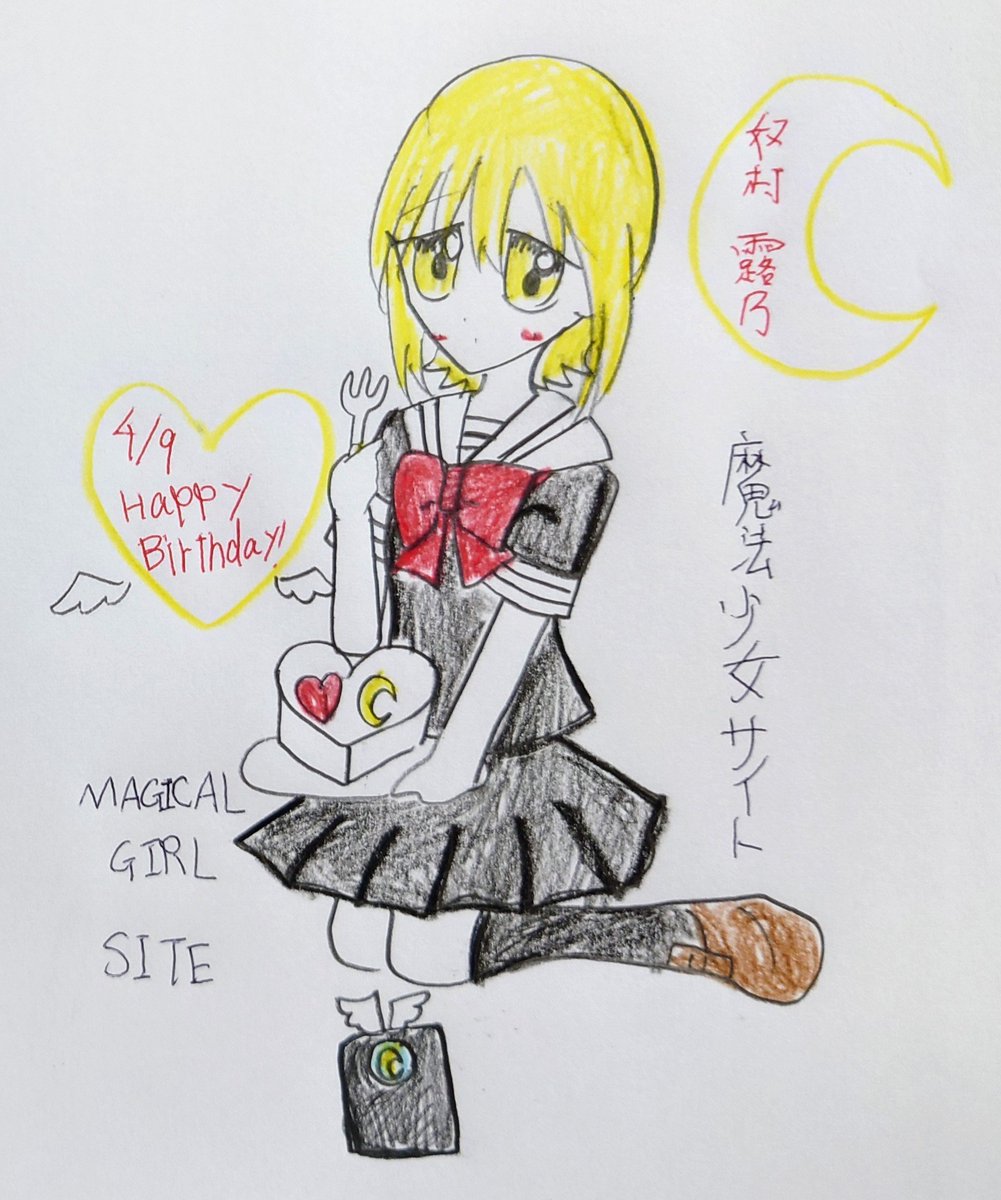 奴村 露乃
4/9
Happy
Birthday!
魔法少女サイト
MAGICAL
GIRL
SITE